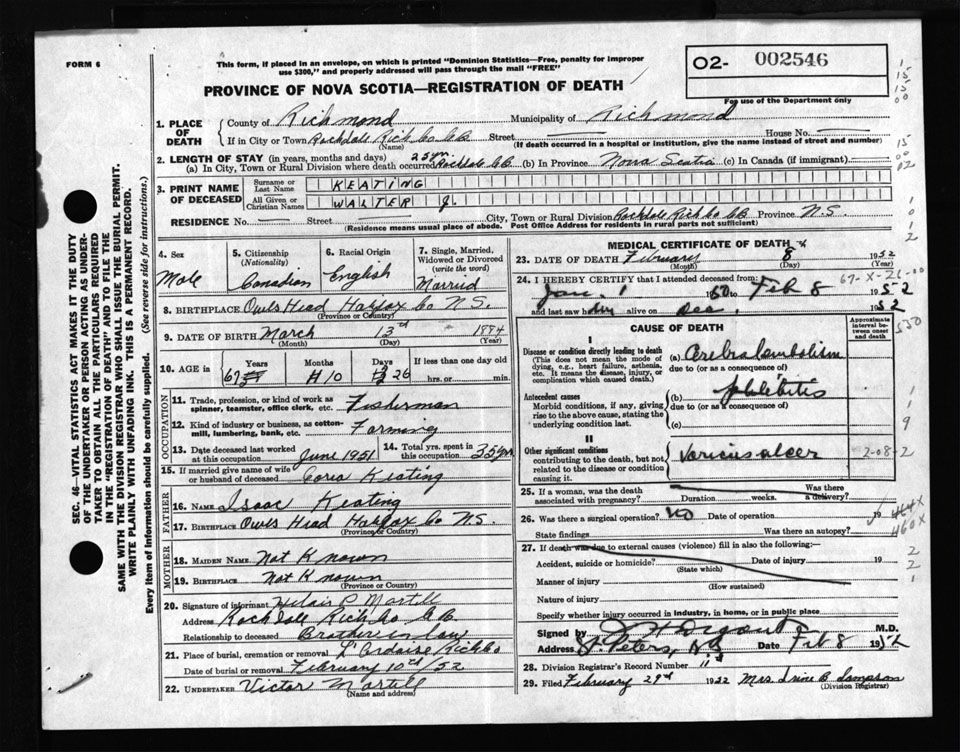 FORM 6
This form, if placed in an envelope, on which is printed "Dominion Statistics—Free, penalty for improper
use $300," and properly addressed will pass through the mail "FREE"
O2- 002546
For use of the Department only
PROVINCE OF NOVA SCOTIA—REGISTRATION OF DEATH
1. PLACE OF DEATH
County of Richmond Municipality of Richmond
If in City or Town Rockdale Rich Co C.B. Street House No.
(Name) (If death occurred in a hospital or institution, give the name instead of street and number)
2. LENGTH OF STAY (in years, months and days) 25 yrs
(a) In City, Town or Rural Division where death occurred Rockdale C.B. (b) In Province Nova Scotia (c) In Canada (if immigrant)
3. PRINT NAME OF DECEASED
Surname or Last Name KEATING
All Given or Christian Names WALTER J.
RESIDENCE No. Street City, Town or Rural Division Rockdale Rich Co C.B. Province N.S.
(Residence means usual place of abode. Post Office Address for residents in rural parts not sufficient)
4. Sex Male
5. Citizenship (Nationality) Canadian
6. Racial Origin English
7. Single, Married, Widowed or Divorced (write the word) Married
8. BIRTHPLACE Owls Head Halifax Co N.S.
(Province or Country)
9. DATE OF BIRTH March 13th 1884
(Month) (Day) (Year)
10. AGE in Years 67 Months 10 Days 26 If less than one day old
hrs. or min.
OCCUPATION
11. Trade, profession, or kind of work as
spinner, teamster, office clerk, etc. Fisherman
12. Kind of industry or business, as cotton-
mill, lumbering, bank, etc. Farming
13. Date deceased last worked at this occupation June 1951
14. Total yrs. spent in this occupation 35 yrs
15. If married give name of wife
or husband of deceased Keating
FATHER
16. Name Isaac Keating
17. Birthplace Owls Head Halifax Co N.S.
MOTHER
18. MAIDEN NAME Not Known
19. BIRTHPLACE Not Known
(Province or Country)
20. Signature of informant Hilair P Martell
Address Rockdale Rich Co C.B.
Relationship to deceased Brother in law
21. Place of burial, cremation or removal L'Ardoise Rich Co
Date of burial or removal February 10th/52
22. UNDERTAKER Victor Martell
(Name and address)
MEDICAL CERTIFICATE OF DEATH
23. DATE OF DEATH February 8 1952
(Month) (Day) (Year)
24. I HEREBY CERTIFY that I attended deceased from:
67-X-26-00
Jan. 1 1950 to Feb 8 1952
and last saw him alive on Dec. 1952
CAUSE OF DEATH
Approximate interval between onset and death
I
Disease or condition directly leading to death
(This does not mean the mode of
dying, e.g., heart failure, asthenia,
etc. It means the disease, injury, or
complication which caused death.)
(a) Cerebral embolism
due to (or as a consequence of)
Antecedent causes
Morbid conditions, if any, giving
rise to the above cause, stating the
underlying condition last.
(b) phlebitis
due to (or as a consequence of)
(c)
II
Other significant conditions
contributing to the death, but not
related to the disease or condition
causing it.
Varicus ulcer
2-08-2
25. If a woman, was the death
associated with pregnancy? Duration weeks. Was there a delivery?
26. Was there a surgical operation? No Date of operation 19
State findings Was there an autopsy?
460X
27. If death was due to external causes (violence) fill in also the following:
Accident, suicide or homicide? Date of injury 19
(State which)
Manner of injury
(How sustained)
Nature of injury
Specify whether injury occurred in industry, in home, or in public place
Signed by M.D.
Address St. Peters, N.S. Date Feb 8 1952
28. Division Registrar's Record Number 11
29. Filed February 29th 1952 Mrs. Irine B Sampson
(Division Registrar)
SEC. 46—VITAL STATISTICS ACT MAKES IT THE DUTY
OF THE UNDERTAKER OR PERSON ACTING AS UNDER-
TAKER TO OBTAIN ALL THE PARTICULARS REQUIRED
IN THE "REGISTRATION OF DEATH" AND TO FILE THE
SAME WITH THE DIVISION REGISTRAR WHO SHALL ISSUE THE BURIAL PERMIT.
WRITE PLAINLY WITH UNFADING INK. THIS IS A PERMANENT RECORD.
Every item of information should be carefully supplied. (See reverse side for instructions.)